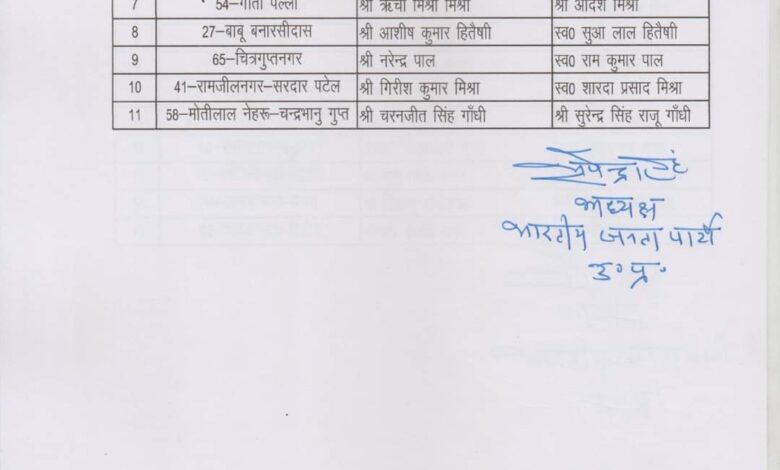 7 54–गीता पल्ली श्री ऋचा मिश्रा मिश्रा श्री आदेश मिश्रा
8 27–बाबू बनारसीदास श्री आशीष कुमार हितैषी स्व0 सुआ लाल हितैषी
9 65–चित्रगुप्तनगर श्री नरेन्द्र पाल स्व0 राम कुमार पाल
10 41–रामजीलनगर–सरदार पटेल श्री गिरीश कुमार मिश्रा स्व0 शारदा प्रसाद मिश्रा
11 58–मोतीलाल नेहरू–चन्द्रभानु गुप्त श्री चरनजीत सिंह गाँधी श्री सुरेन्द्र सिंह राजू गाँधी
अध्यक्ष
भारतीय जनता पार्टी
उ॰प्र॰